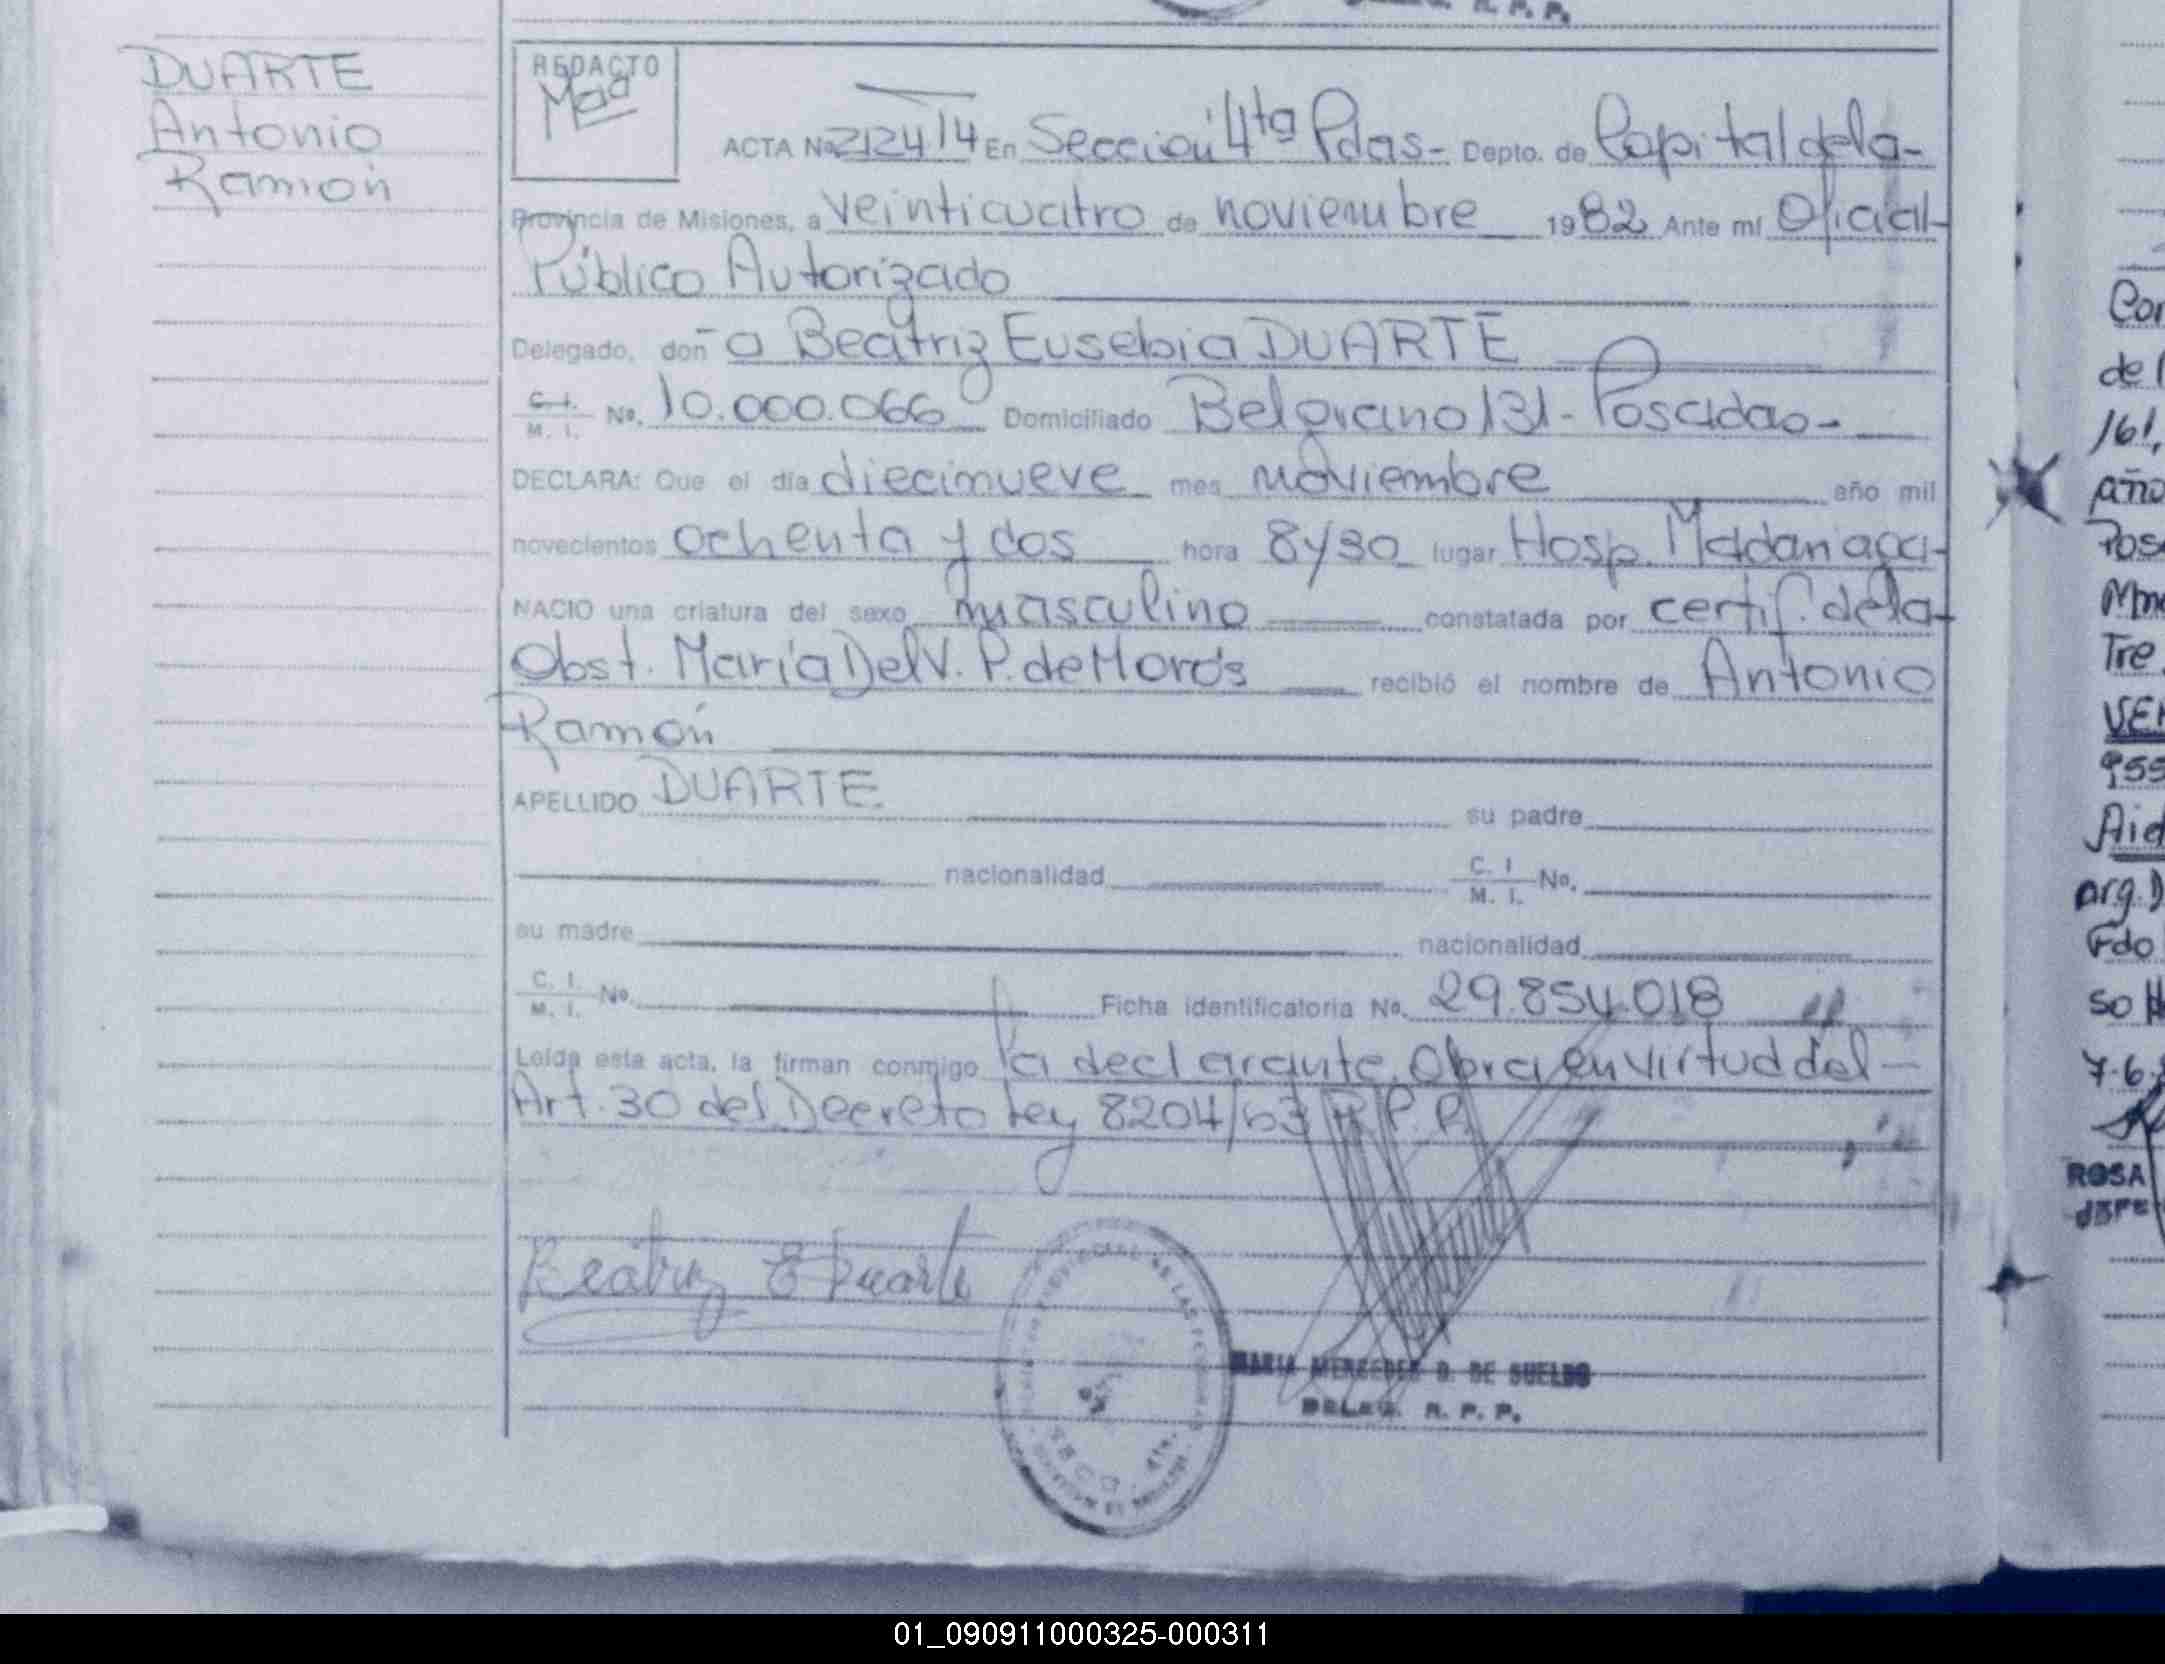 R. P. P.
DUARTE
Antonio
Ramón
REDACTO
ACTA No 2124 14 En Sección 4ta Pdas- Depto. de Capital dela-
Provincia de Misiones, a veinticuatro de noviembre 1982 Ante mí Oficial
Público Autorizado
Delegado, don-a Beatriz Eusebia DUARTE
C. I. / M. I. No. 10.000.066 Domiciliado Belgrano 131- Posadas-
DECLARA: Que el día diecinueve mes noviembre año mil
novecientos ochenta y dos hora 8y30 lugar Hosp. Madariaga-
NACIO una criatura del sexo masculino constatada por certif. dela-
Obst. María Del V. P. de recibió el nombre de Antonio
Ramón
APELLIDO DUARTE su padre
nacionalidad C. I / M. I. No.
su madre nacionalidad
C. I. / M. I. No. Ficha identificatoria No. 29.854.018
Leída esta acta, la firman conmigo la declarante. Obra en virtud del-
Art. 30 del Decreto Ley 8204/63 R.P.P.
Beatriz E Duarte
MARIA MERCEDES D. DE SUELDO
DELEG. R. P. P.
Con
de
161,
año
Pos
Tre
VE
955
Aid
arg. D
Fdo
so
7.6.
ROSA
JEFE
01_090911000325-000311